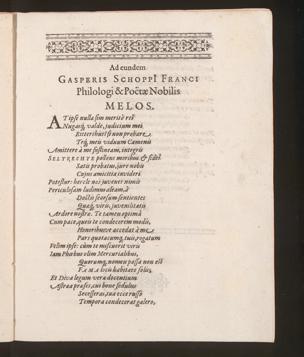 Ad eundem
GASPERIS SCHOPPI FRANCI
Philologi & Poëtæ Nobilis
MELOS.
AT ipse nulla sim meritò reus
Nugarũ, valde, iudicium mei
probare
meis viduum Camenis
Amittere à me sustineam, integris
pollens moribus & fide!
Satis probatus, iure nobis
Cujus amicitia invideri
Potestur: hercle nec juvenor nimis
Periculosam ludimus aleam,
Doctis seorsum sentientes
viris, juvenilitatis
Ardore nostra. Te tamen optimâ
Cum pace, quæis te condecorem modis,
Honoribusve accedat à me
Pars quotacunq, tuis, rogatum
Velim ipse: cùm te miscuerit viris
Iam Phœbus olim Mercurialibus,
Quorumq, nomen passa non est
FAMA locis habitare solis,
Et Diva legum vera docentium
Astræa præses, cui bone sedulus
Secesseras, tua ecce russo
Tempora condecorat galero,